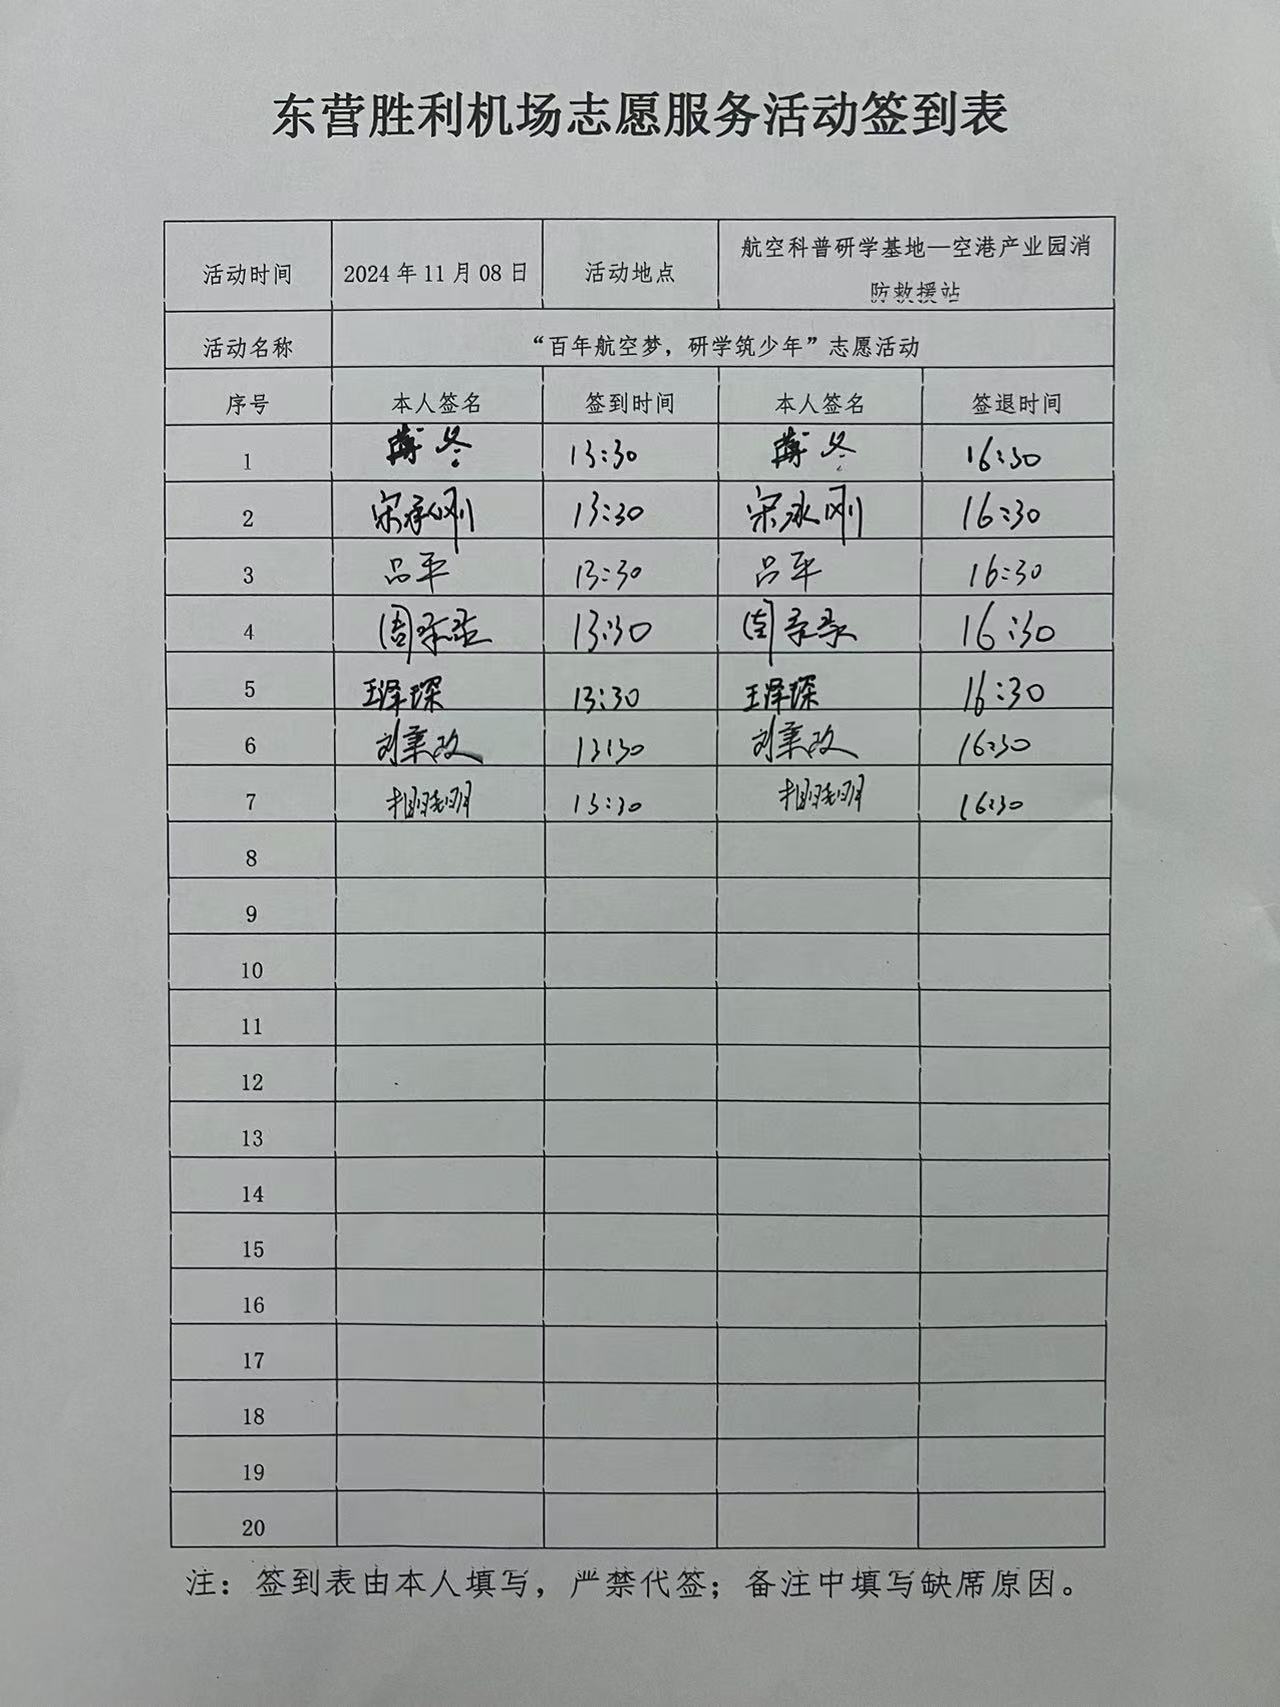 东营胜利机场志愿服务活动签到表
活动时间 2024年11月08日 活动地点 航空科普研学基地—空港产业园消
防救援站
活动名称 “百年航空梦，研学筑少年”志愿活动
序号 本人签名 签到时间 本人签名 签退时间
1 薄冬 13:30 薄冬 16:30
2 宋承刚 13:30 宋承刚 16:30
3 吕平 13:30 吕平 16:30
4 周 13:30 周 16:30
5 王泽琛 13:30 王泽琛 16:30
6 刘 13:30 刘 16:30
7 相晓明 13:30 相晓明 16:30
8
9
10
11
12
13
14
15
16
17
18
19
20
注：签到表由本人填写，严禁代签；备注中填写缺席原因。